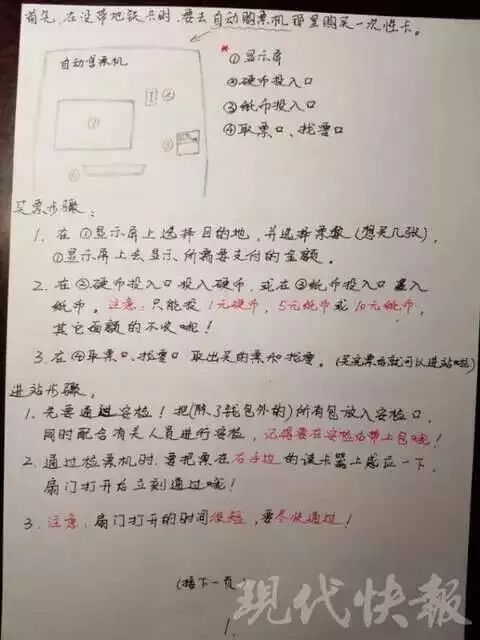 首先，在没带地铁卡时，要去自动购票机那里购买一次性卡。
自动售票机
① ② ③ ④
*①显示屏
②硬币投入口
③纸币投入口
④取票口、找零口
买票步骤：
1. 在①显示屏上选择目的地，并选择票数(想买几张)，
①显示屏上会显示所需要支付的金额。
2. 在②硬币投入口投入硬币，或在③纸币投入口塞入
纸币。注意：只能投1元硬币，5元纸币或10元纸币，
其它面额的不收哦！
3. 在④取票口、找零口取出买的票和找零。(买完票后就可以进站啦)
进站步骤。
1. 先要通过安检！把(除了钱包外的)所有包放入安检口，
同时配合有关人员进行安检，记得要在安检后带上包哦！
2. 通过检票机时，要把票在右手边的读卡器上感应一下，
扇门打开后立刻通过哦！
3. 注意：扇门打开的时间很短，要尽快通过！
(接下一页)
现代快报
1.